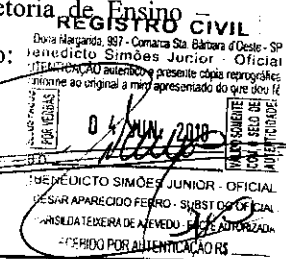 etoria de Ensino –
REGISTRO CIVIL
o:
Dona Margarida, 997 - Comarca Sta. Bárbara d'Oeste - SP
Benedicto Simões Junior - Oficial
AUTENTICAÇÃO autentico a presente cópia reprográfica
conforme ao original a mim apresentado do que dou fé
04 JUN. 2010
VÁLIDO SOMENTE
COM O SELO DE
AUTENTICIDADE
BENEDICTO SIMÕES JUNIOR - OFICIAL
CESAR APARECIDO FERRO - SUBST DO OFICIAL
MARISILDA TEIXEIRA DE AZEVEDO - ESCTE AUTORIZADA
RECEBIDO POR AUTENTICAÇÃO R$